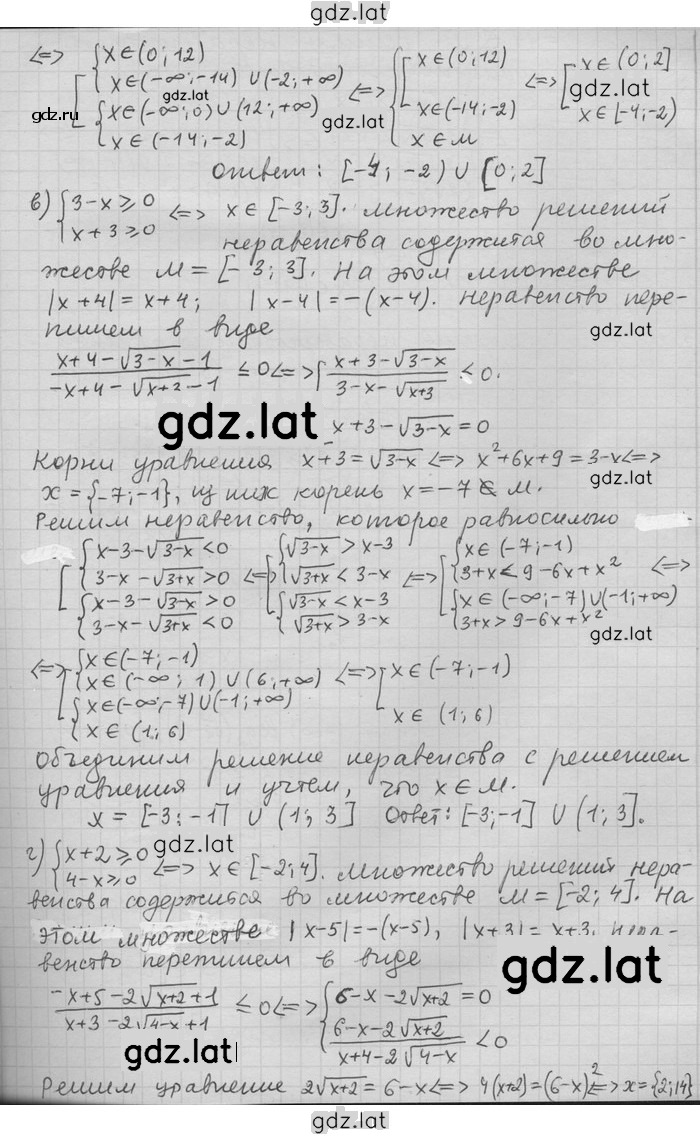 gdz.lat
<=> [ { x∈(0; 12) x∈(-∞;-14) ∪(-2;+∞) { x∈(-∞;0)∪(12;+∞) x∈(-14;-2) <=> { [ x∈(0;12) x∈(-14;-2) x∈м <=> [ x∈(0;2] x∈[-4;-2)
gdz.lat
gdz.lat
gdz.ru
gdz.lat
Ответ: [-4; -2) ∪ [0; 2]
в) { 3-x ≥ 0 x+3 ≥ 0 <=> x∈[-3; 3]. множество решений
неравенства содержится во мно-
жестве м = [-3; 3]. На этом множестве
|x+4| = x+4; |x-4| = -(x-4). неравенство пере-
пишем в виде
gdz.lat
(x+4-√3-x-1)/(-x+4-√x+2-1) ≤ 0 <=> { (x+3-√3-x)/(3-x-√x+3) < 0.
gdz.lat
x+3-√3-x = 0
Корни уравнения x+3 = √3-x <=> x²+6x+9 = 3-x <=>
x = {-7;-1}, из них корень x = -7 ∉ м.
gdz.lat
Решим неравенство, которое равносильно
[ { x-3-√3-x < 0 3-x-√3+x > 0 { x-3-√3-x > 0 3-x-√3+x < 0 <=> [ { √3-x > x-3 √3+x < 3-x { √3-x < x-3 √3+x > 3-x <=> [ { x∈(-7;-1) 3+x < 9-6x+x² { x∈(-∞;-7)∪(-1;+∞) 3+x > 9-6x+x² <=>
gdz.lat
<=> [ { x∈(-7;-1) x∈(-∞; 1) ∪(6;+∞) { x∈(-∞;-7)∪(-1;+∞) x∈(1;6) <=> [ x∈(-7;-1) x∈(1;6)
Объединим решение неравенства с решением
уравнения и учтем, что x∈м.
x = [-3; -1] ∪ (1; 3] Ответ: [-3;-1] ∪ (1; 3].
gdz.lat
г) { x+2 ≥ 0 4-x ≥ 0 <=> x∈[-2;4]. множество решений нера-
венства содержится во множестве м = [-2; 4]. На
этом множестве |x-5| = -(x-5), |x+3| = x+3.
венство перепишем в виде
gdz.lat
(-x+5-2√x+2+1)/(x+3-2√4-x+1) ≤ 0 <=> { 6-x-2√x+2 = 0 (6-x-2√x+2)/(x+4-2√4-x) < 0
gdz.lat
Решим уравнение 2√x+2 = 6-x <=> 4(x+2) = (6-x)² <=> x = {2;14}
gdz.lat